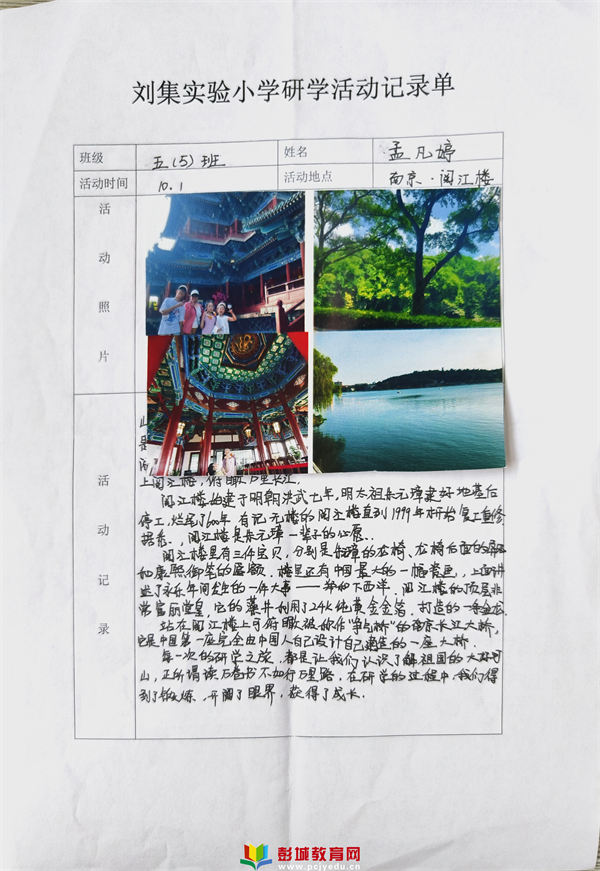 刘集实验小学研学活动记录单
班级 五(5)班 姓名 孟凡婷
活动时间 10.1 活动地点 南京·阅江楼
活动照片
活动记录
上阅江楼,俯瞰万里长江.
阅江楼始建于明朝洪武七年,明太祖朱元璋建好地基后
停工,烂尾了600年 有记无楼的阅江楼直到1999年才开始复工重修
阅江楼是朱元璋一辈子的心愿.
阅江楼里有三件宝贝,分别是朱元璋的龙椅、龙椅后面的
和康熙御笔的匾额.楼里还有中国最大的一幅瓷画,上面讲
述了永乐年间发生的一件大事——郑和下西洋.阅江楼的顶层非
常富丽堂皇,它的藻井利用了24K纯黄金金箔,打造的一条金龙.
站在阅江楼上可俯瞰被称作"争气桥"的南京长江大桥,
它是中国第一座完全由中国人自己设计自己建造的一座大桥.
每一次的研学之旅,都是让我们认识了解祖国的大好河
山,正所谓读万卷书不如行万里路,在研学的过程中,我们得
到了锻炼,开阔了眼界,获得了成长.
彭城教育网
www.pcjyedu.cn